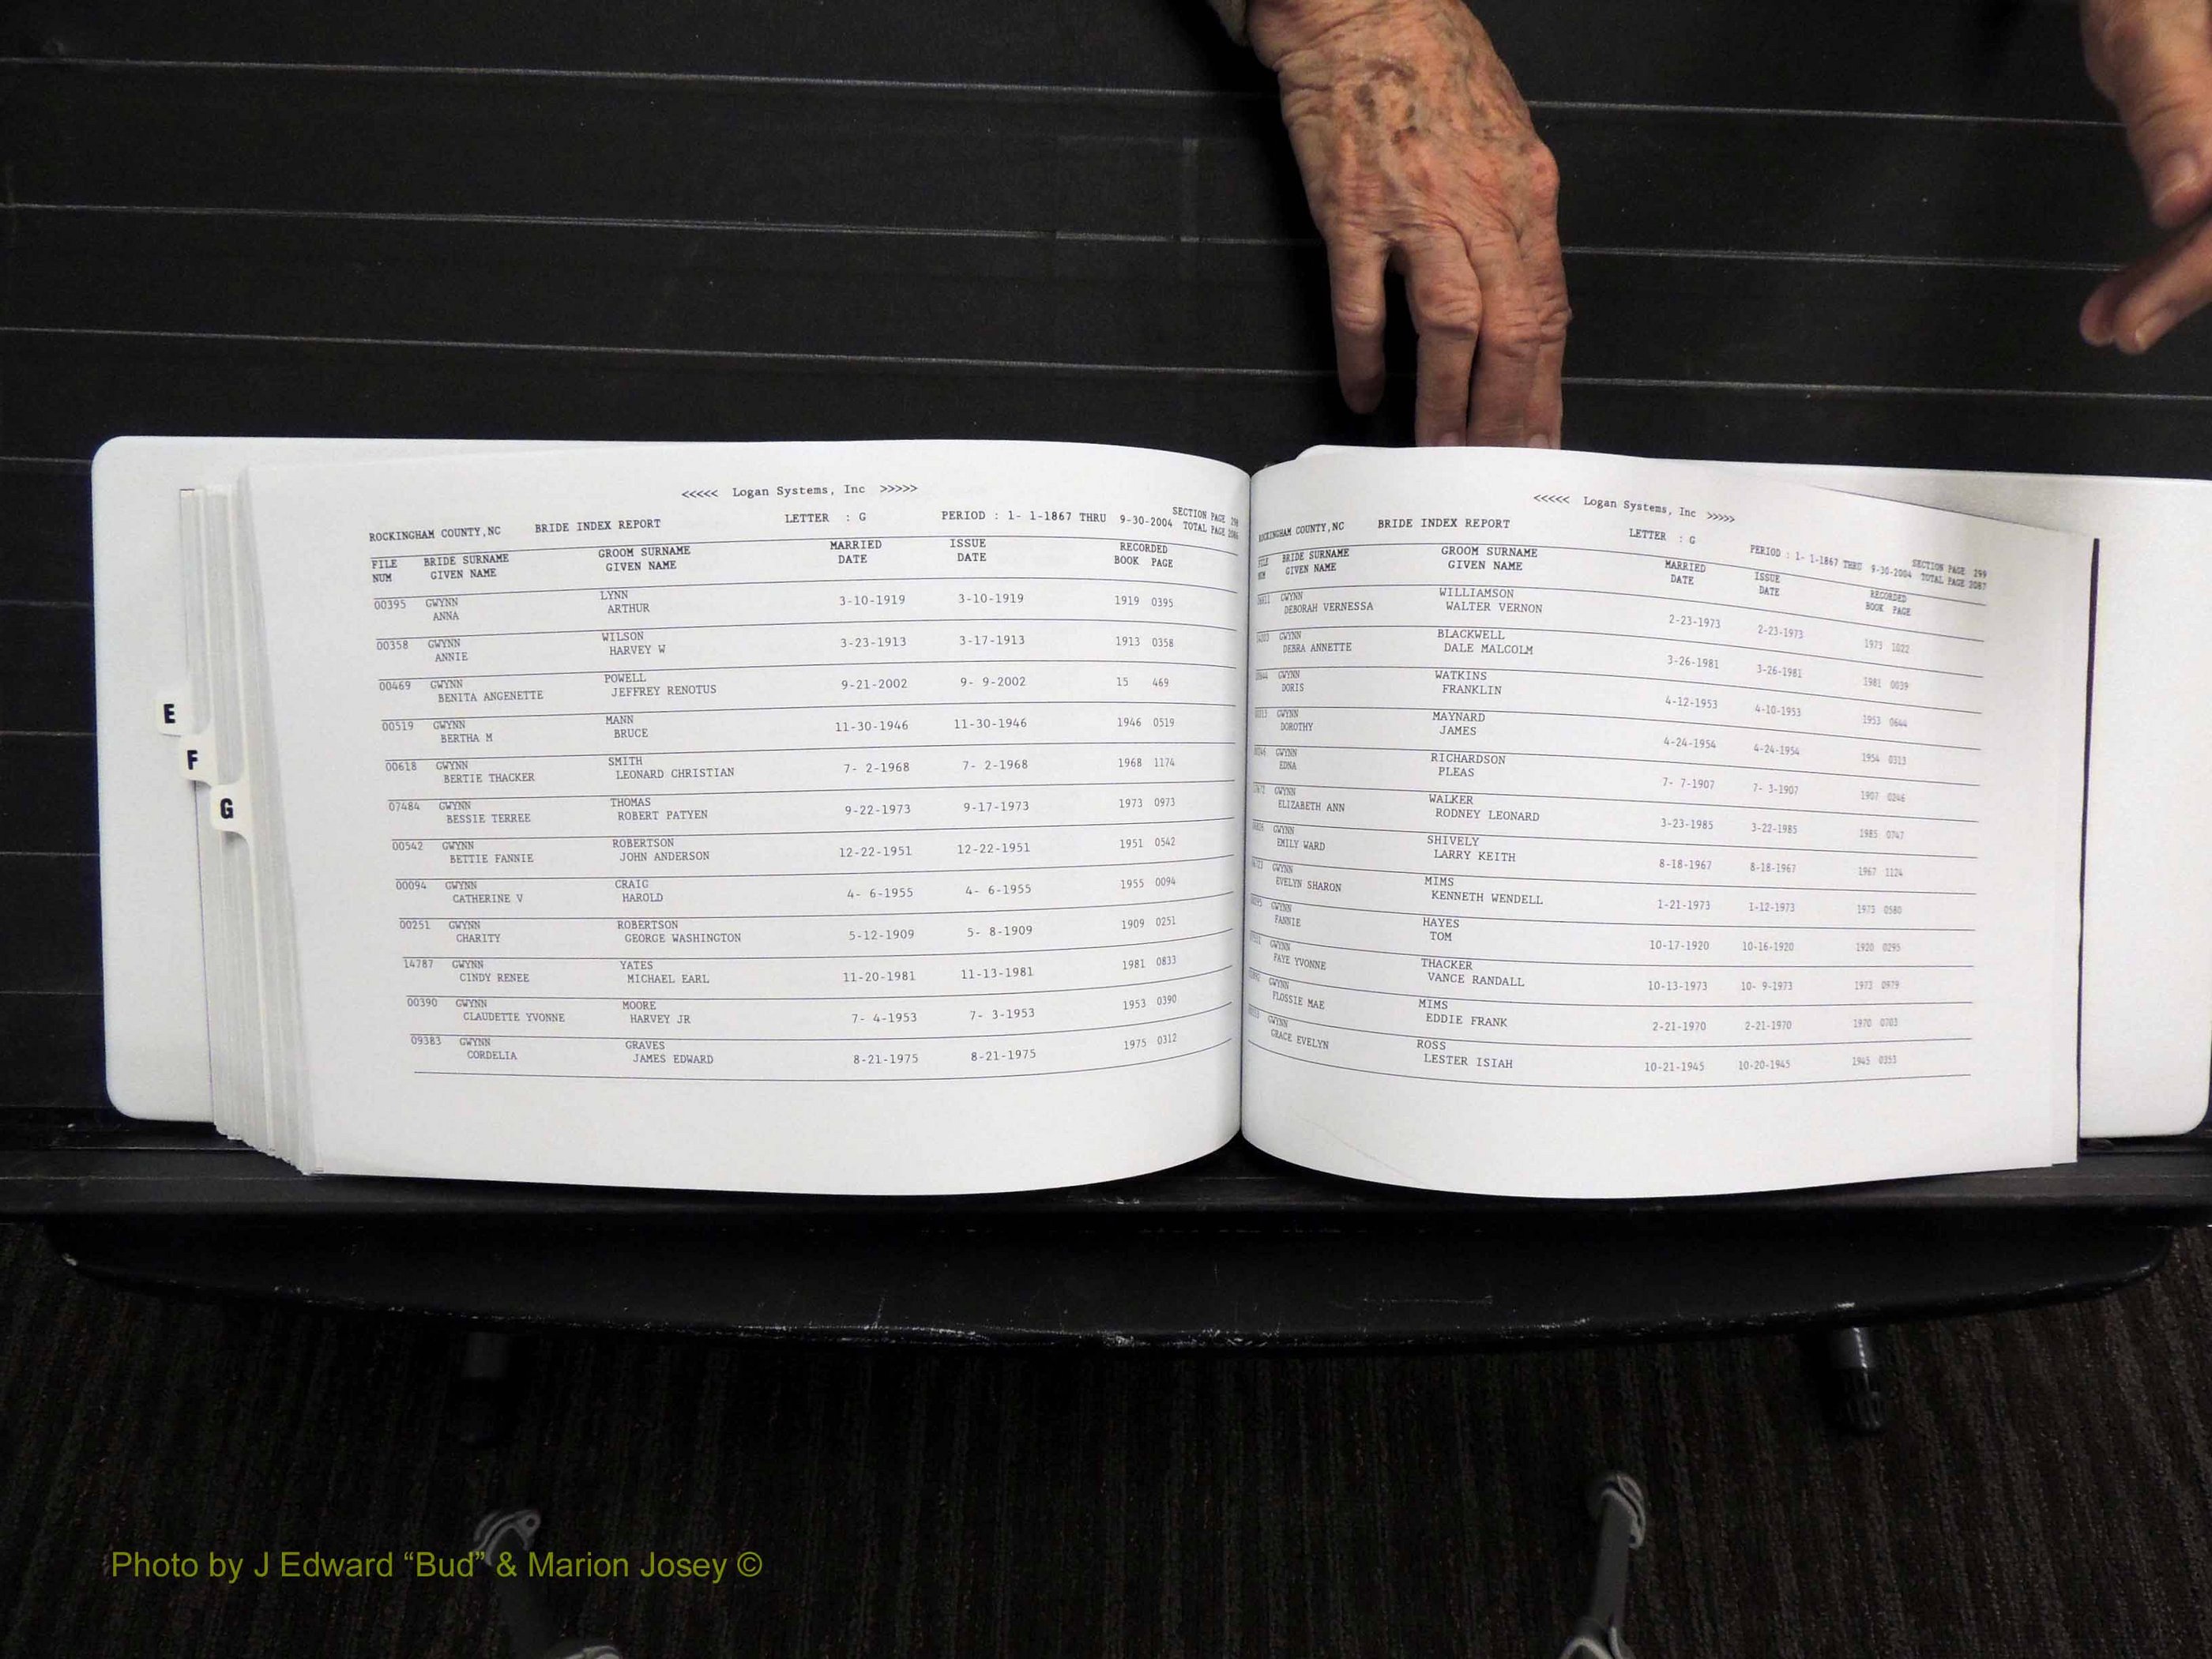 <<<<< Logan Systems, Inc >>>>>
ROCKINGHAM COUNTY,NC BRIDE INDEX REPORT LETTER : G PERIOD : 1- 1-1867 THRU 9-30-2004 SECTION PAGE 298
TOTAL PAGE 2086
FILE BRIDE SURNAME GROOM SURNAME MARRIED ISSUE RECORDED
NUM GIVEN NAME GIVEN NAME DATE DATE BOOK PAGE
00395 GWYNN LYNN 3-10-1919 3-10-1919 1919 0395
ANNA ARTHUR
00358 GWYNN WILSON 3-23-1913 3-17-1913 1913 0358
ANNIE HARVEY W
00469 GWYNN POWELL 9-21-2002 9- 9-2002 15 469
BENITA ANGENETTE JEFFREY RENOTUS
00519 GWYNN MANN 11-30-1946 11-30-1946 1946 0519
BERTHA M BRUCE
00618 GWYNN SMITH 7- 2-1968 7- 2-1968 1968 1174
BERTIE THACKER LEONARD CHRISTIAN
07484 GWYNN THOMAS 9-22-1973 9-17-1973 1973 0973
BESSIE TERREE ROBERT PATYEN
00542 GWYNN ROBERTSON 12-22-1951 12-22-1951 1951 0542
BETTIE FANNIE JOHN ANDERSON
00094 GWYNN CRAIG 4- 6-1955 4- 6-1955 1955 0094
CATHERINE V HAROLD
00251 GWYNN ROBERTSON 5-12-1909 5- 8-1909 1909 0251
CHARITY GEORGE WASHINGTON
14787 GWYNN YATES 11-20-1981 11-13-1981 1981 0833
CINDY RENEE MICHAEL EARL
00390 GWYNN MOORE 7- 4-1953 7- 3-1953 1953 0390
CLAUDETTE YVONNE HARVEY JR
09383 GWYNN GRAVES 8-21-1975 8-21-1975 1975 0312
CORDELIA JAMES EDWARD
<<<<< Logan Systems, Inc >>>>>
ROCKINGHAM COUNTY,NC BRIDE INDEX REPORT LETTER : G PERIOD : 1- 1-1867 THRU 9-30-2004 SECTION PAGE 299
TOTAL PAGE 2087
FILE BRIDE SURNAME GROOM SURNAME MARRIED ISSUE RECORDED
NUM GIVEN NAME GIVEN NAME DATE DATE BOOK PAGE
GWYNN WILLIAMSON 2-23-1973 2-23-1973 1973 1022
DEBORAH VERNESSA WALTER VERNON
GWYNN BLACKWELL 3-26-1981 3-26-1981 1981 0039
DEBRA ANNETTE DALE MALCOLM
GWYNN WATKINS 4-12-1953 4-10-1953 1953 0644
DORIS FRANKLIN
GWYNN MAYNARD 4-24-1954 4-24-1954 1954 0313
DOROTHY JAMES
GWYNN RICHARDSON 7- 7-1907 7- 3-1907 1907 0246
EDNA PLEAS
GWYNN WALKER 3-23-1985 3-22-1985 1985 0747
ELIZABETH ANN RODNEY LEONARD
GWYNN SHIVELY 8-18-1967 8-18-1967 1967 1124
EMILY WARD LARRY KEITH
GWYNN MIMS 1-21-1973 1-12-1973 1973 0580
EVELYN SHARON KENNETH WENDELL
GWYNN HAYES 10-17-1920 10-16-1920 1920 0295
FANNIE TOM
GWYNN THACKER 10-13-1973 10- 9-1973 1973 0979
FAYE YVONNE VANCE RANDALL
GWYNN MIMS 2-21-1970 2-21-1970 1970 0703
FLOSSIE MAE EDDIE FRANK
GWYNN ROSS 10-21-1945 10-20-1945 1945 0353
GRACE EVELYN LESTER ISIAH
E
F
G
Photo by J Edward “Bud” & Marion Josey ©